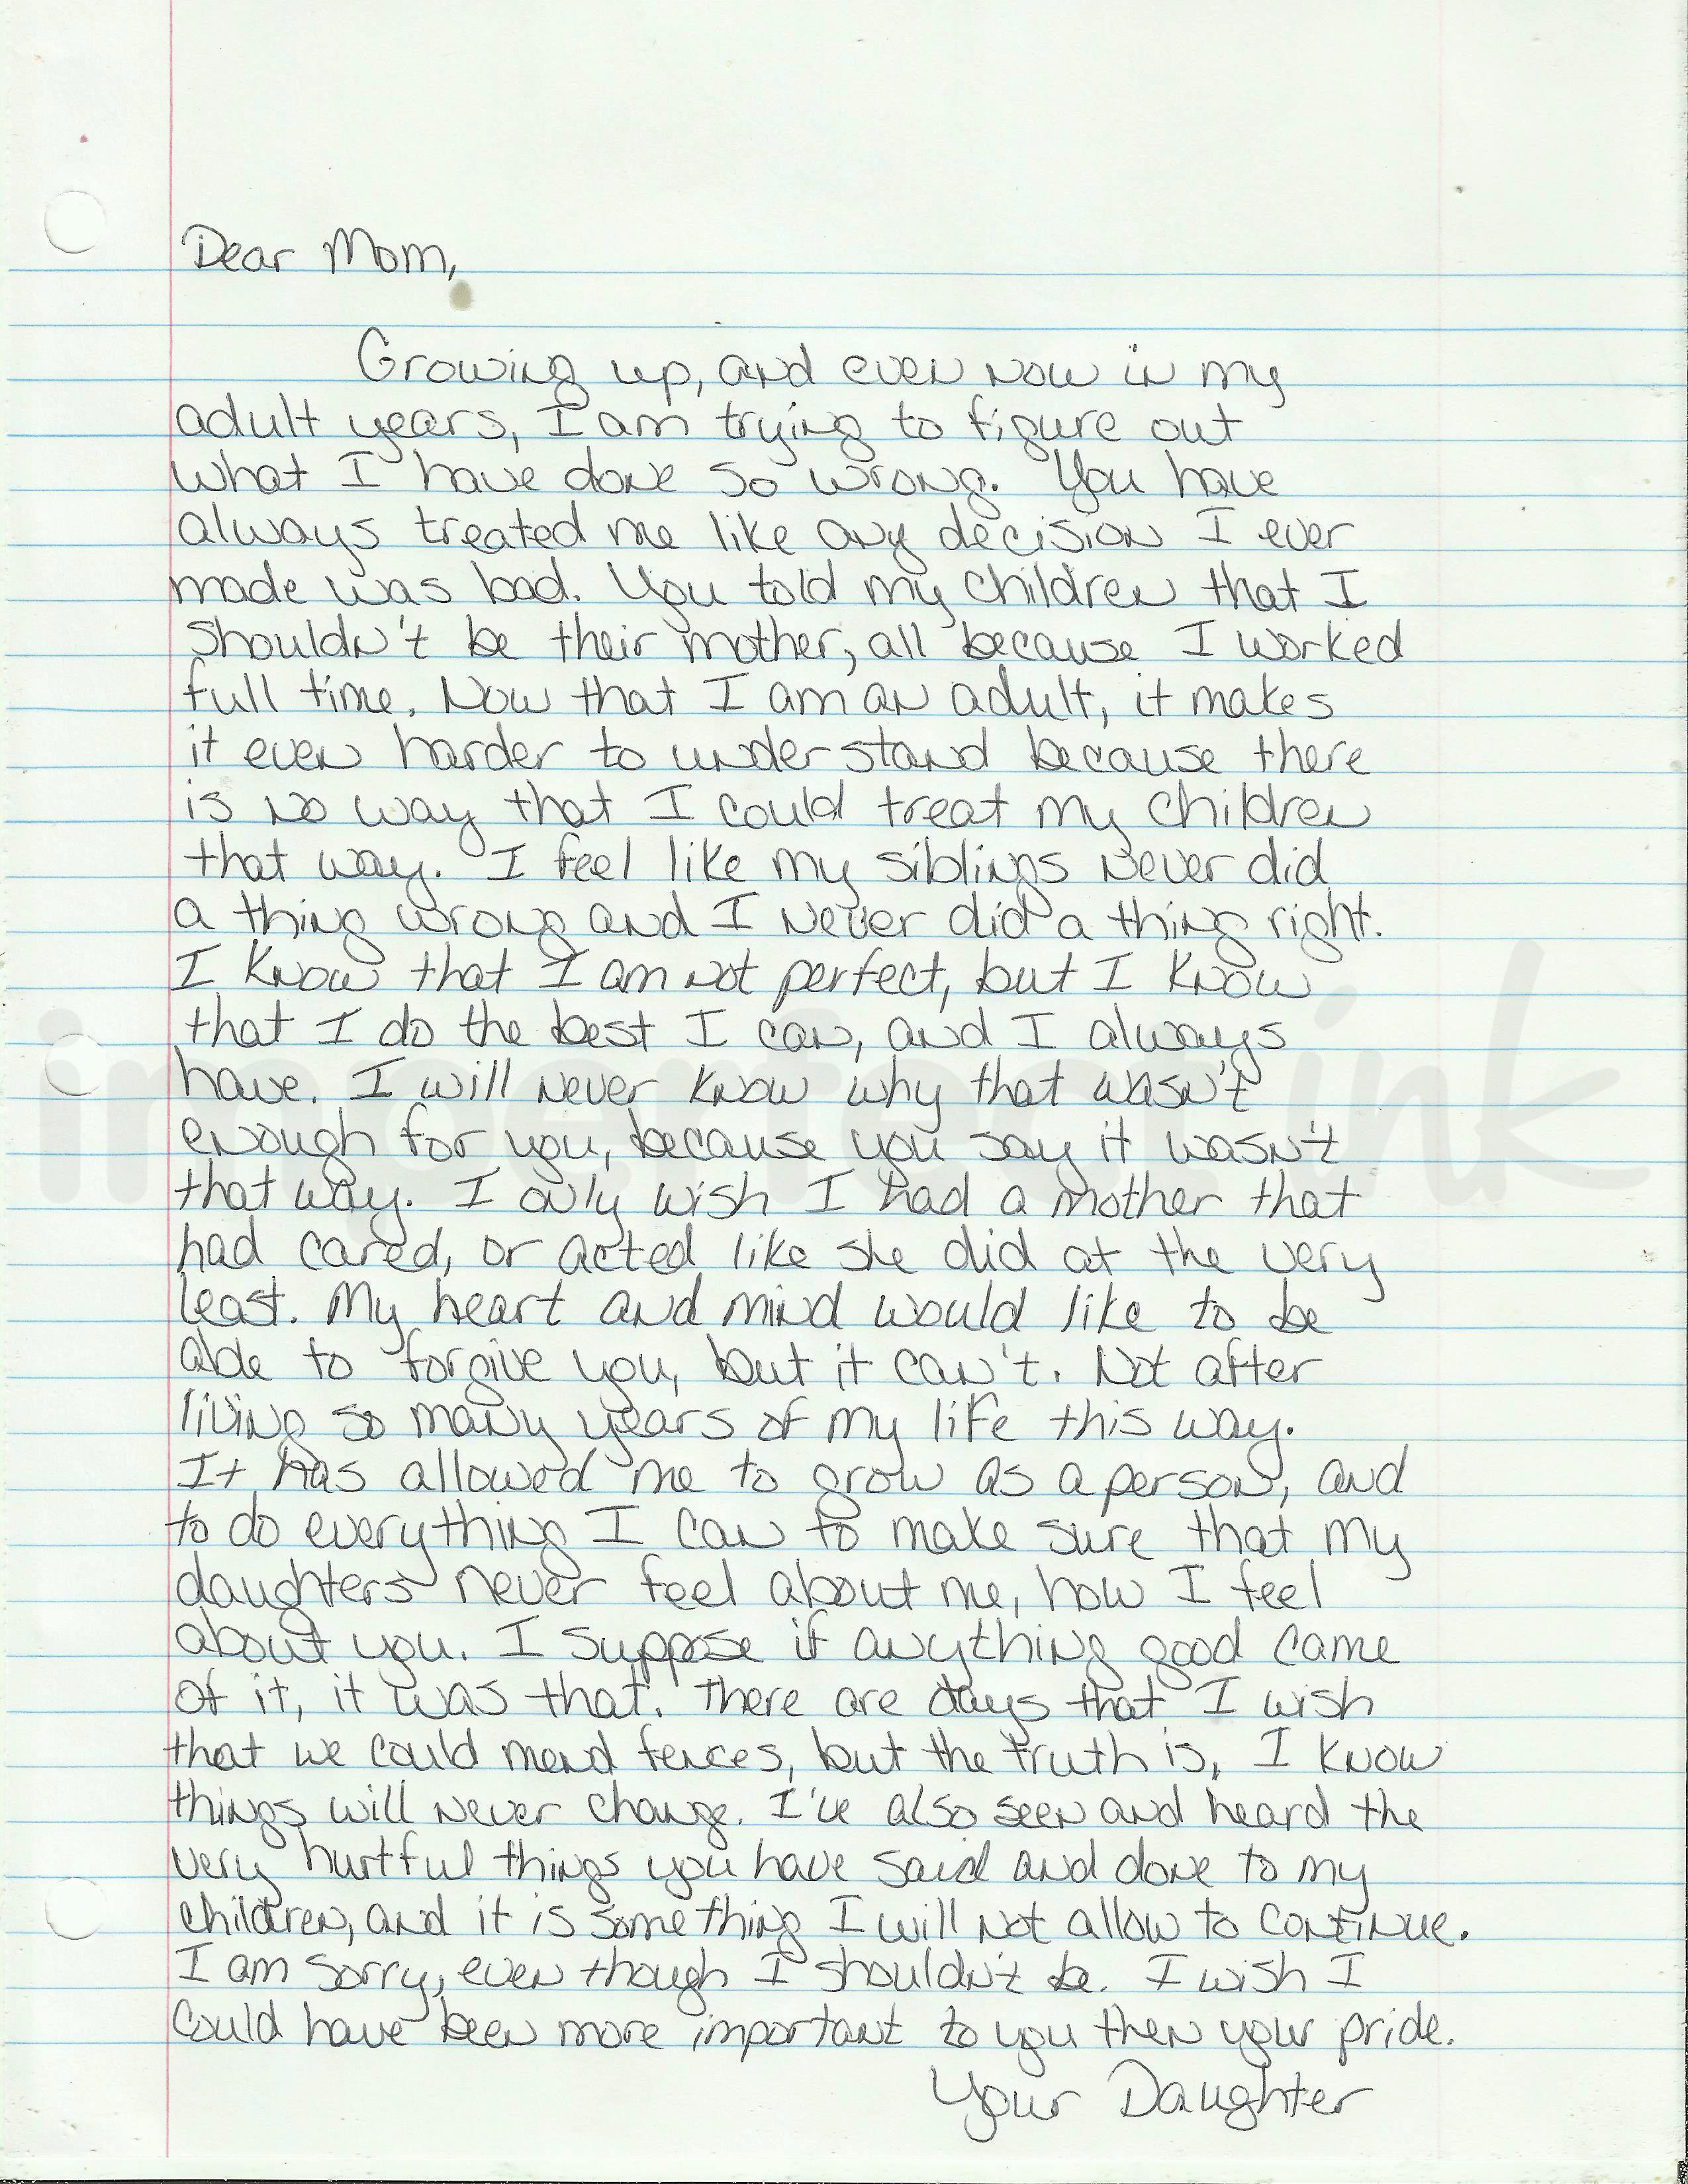 Dear Mom,
Growing up, and even now in my
adult years, I am trying to figure out
what I have done so wrong. You have
always treated me like any decision I ever
made was bad. You told my children that I
shouldn't be their mother, all because I worked
full time. Now that I am an adult, it makes
it even harder to understand because there
is no way that I could treat my children
that way. I feel like my siblings never did
a thing wrong and I never did a thing right.
I know that I am not perfect, but I know
that I do the best I can, and I always
have. I will never know why that wasn't
enough for you, because you say it wasn't
that way. I only wish I had a mother that
had cared, or acted like she did at the very
least. My heart and mind would like to be
able to forgive you, but it can't. Not after
living so many years of my life this way.
It has allowed me to grow as a person, and
to do everything I can to make sure that my
daughters never feel about me, how I feel
about you. I suppose if anything good came
of it, it was that. There are days that I wish
that we could mend fences, but the truth is, I know
things will never change. I've also seen and heard the
very hurtful things you have said and done to my
children, and it is something I will not allow to continue.
I am sorry, even though I shouldn't be. I wish I
could have been more important to you then your pride.
Your Daughter